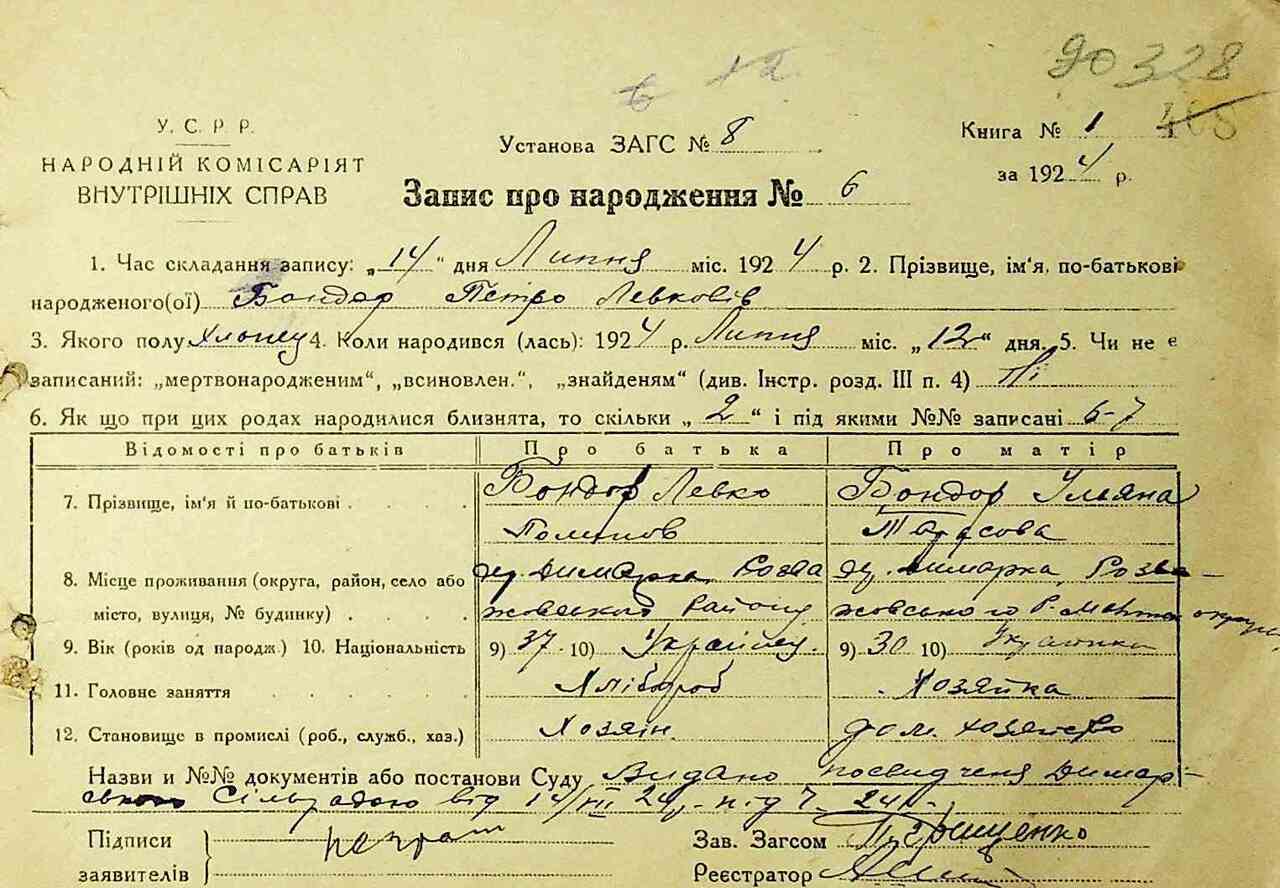 90328
У. С. Р. Р.
НАРОДНІЙ КОМІСАРІЯТ
ВНУТРІШНІХ СПРАВ
Установа ЗАГС № 8
Книга № 1
за 1924 р.
Запис про народження № 6
1. Час складання запису: „14“ дня Липня міс. 1924 р. 2. Прізвище, ім'я, по-батькові
народженого(ої) Бондар Петро Левковів
3. Якого полу Хлопец 4. Коли народився (лась): 1924 р. Липня міс. „12“ дня. 5. Чи не є
записаний: „мертвонародженим“, „всиновлен.“, „знайденям“ (див. Інстр. розд. III п. 4) Ні
6. Як що при цих родах народилися близнята, то скільки „2“ і під якими №№ записані 6-7
Відомості про батьків Про батька Про матір
7. Прізвище, ім'я й по-батькові . . . . Бондор Левко Бондор Ульяна
Тарасова
8. Місце проживання (округа, район, село або Димарка Розва Димарка, Розва-
місто, вулиця, № будинку) . . . . жовського Району жовського Р. округи
9. Вік (років од народж.) 10. Національність 9) 37 10) Українец. 9) 30 10) Українка
11. Головне заняття . . . . . Хлібороб Хозяйка
12. Становище в промислі (роб., служб., хаз.) Хозяін. дом. хозяйство
Назви и №№ документів або постанови Суду Видано посвидченя Димар-
ською Сільрадою від 14/VII 24 р. під Ч. 24
Підписи неграм
заявителів
Зав. Загсом Грищенко
Реєстратор